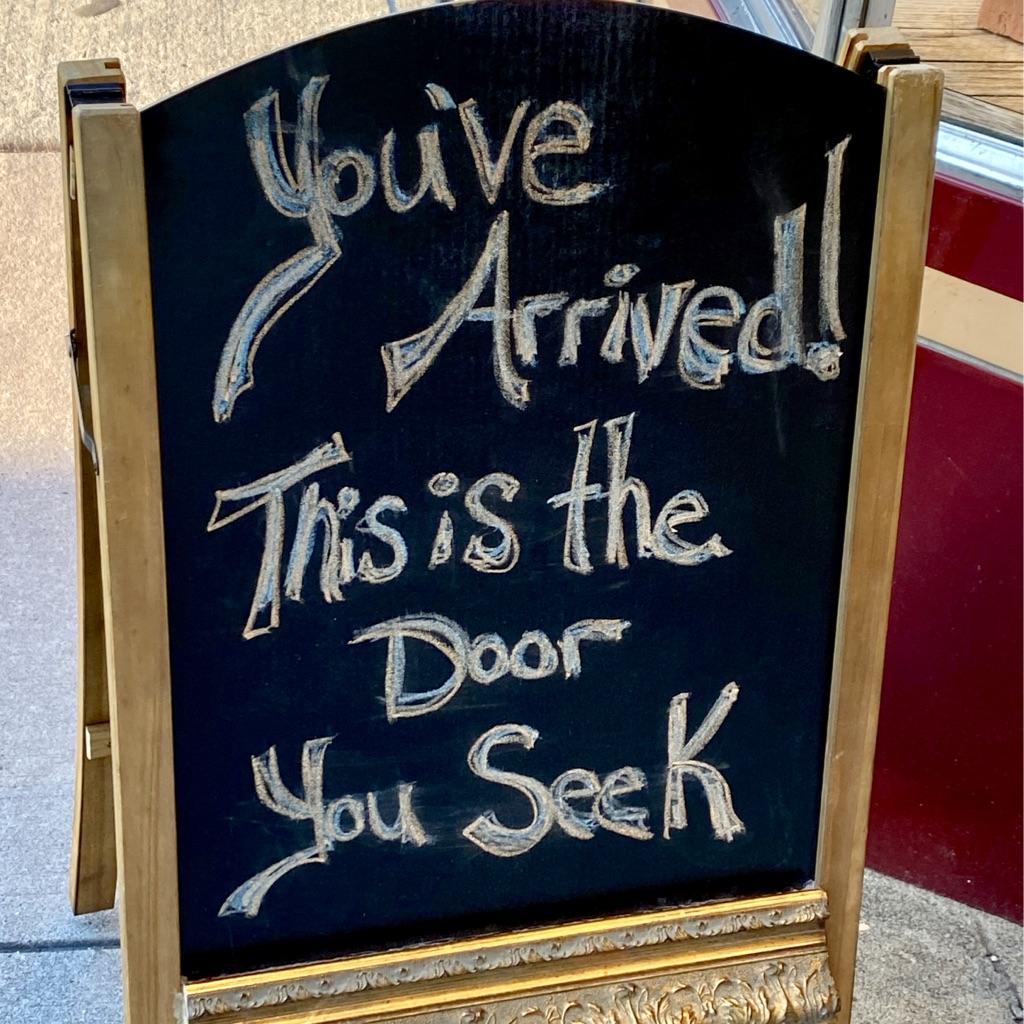 You've
Arrived!
This is the
Door
You Seek